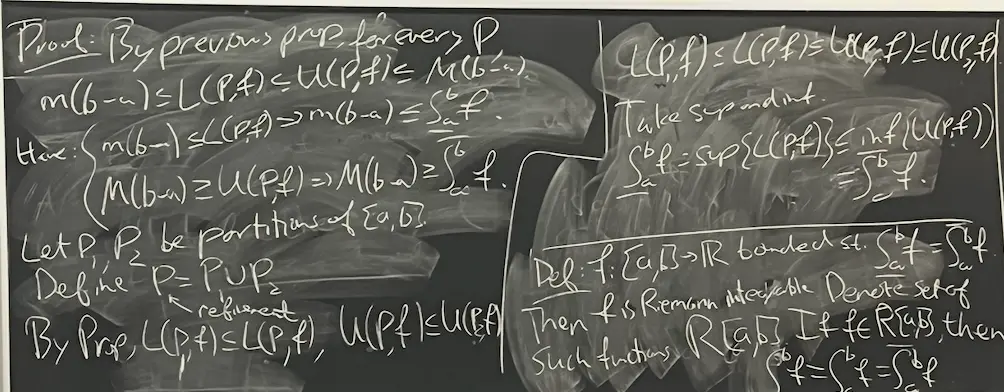 Proof: By previous prop, for every P,
m(b-a) ≤ L(P,f) ≤ U(P,f) ≤ M(b-a).
Have: { m(b-a) ≤ L(P,f) ⇒ m(b-a) ≤ \underline{∫}_a^b f.
M(b-a) ≥ U(P,f) ⇒ M(b-a) ≥ \overline{∫}_a^b f.
Let P₁, P₂ be partitions of [a,b].
Define P = P₁ ∪ P₂
↖ refinement
By Prop, L(P₁,f) ≤ L(P,f), U(P,f) ≤ U(P₂,f)
L(P₁,f) ≤ L(P,f) ≤ U(P,f) ≤ U(P₂,f)
Take sup and inf.
\underline{∫}_a^b f = sup{L(P,f)} ≤ inf{U(P,f)}
= \overline{∫}_a^b f.
Def: f: [a,b] → ℝ bonded st. \underline{∫}_a^b f = \overline{∫}_a^b f.
Then f is Riemann integrable Denote set of
such functions R[a,b]. If f∈R[a,b], then
∫_a^b f = \underline{∫}_a^b f = \overline{∫}_a^b f